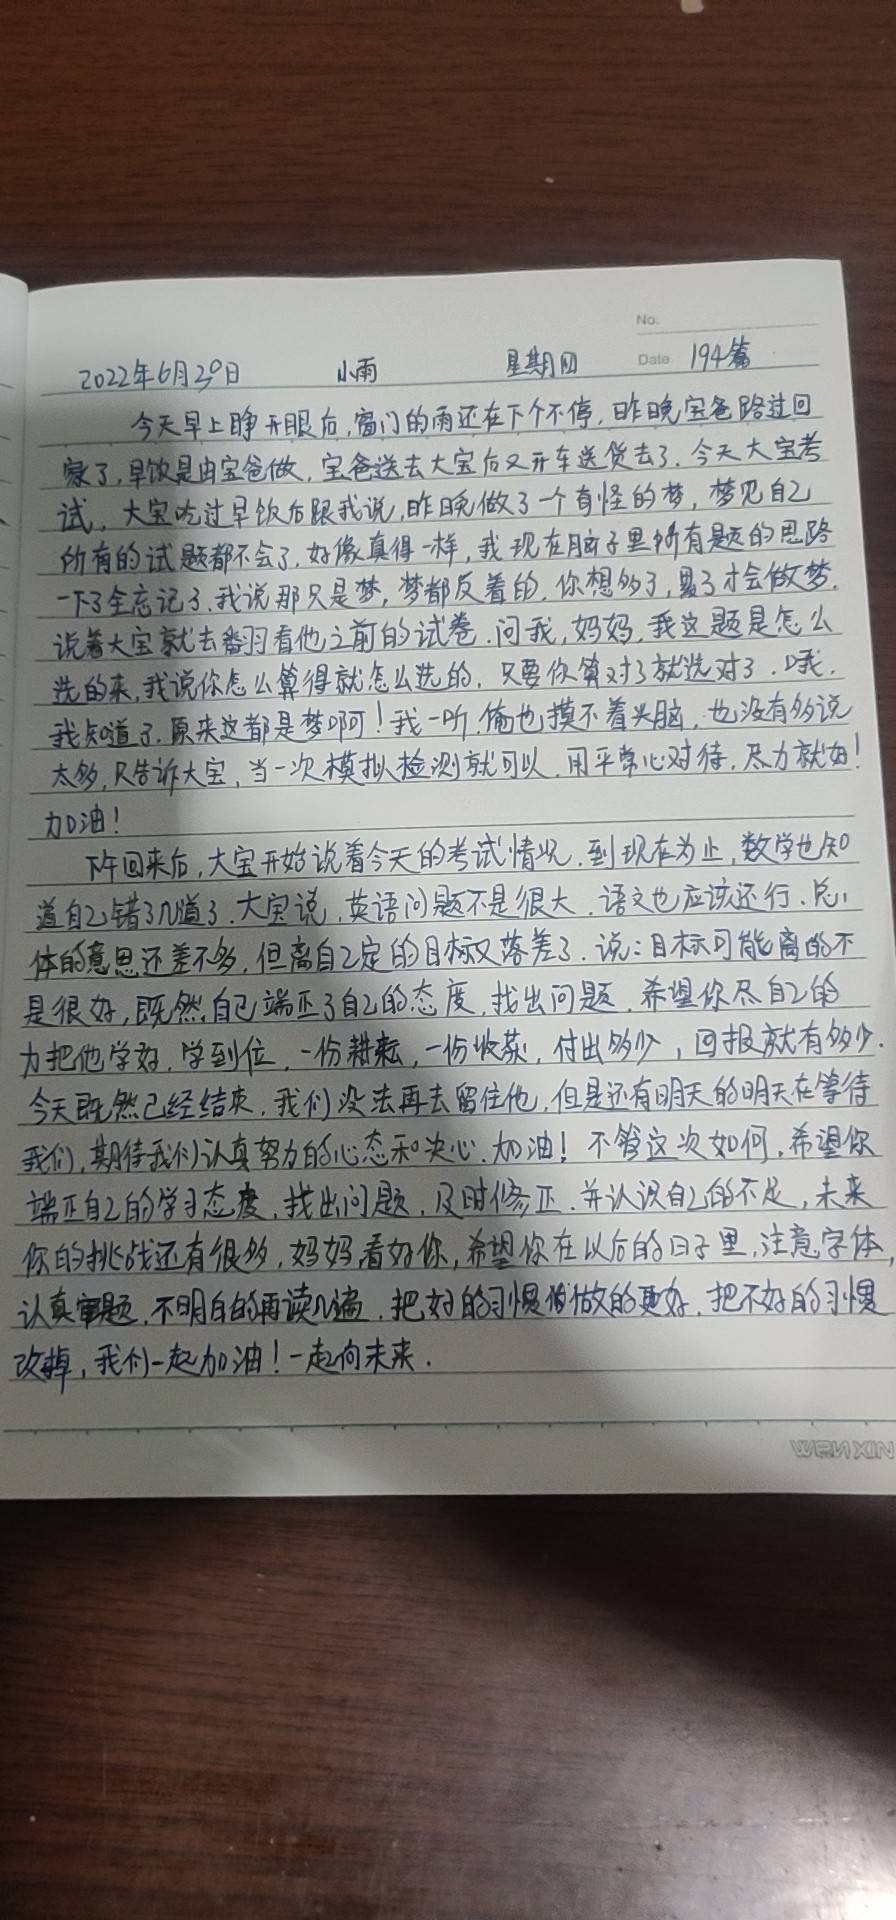 No.
2022年6月29日 小雨 星期四 Date 194篇
今天早上睁开眼后,窗门的雨还在下个不停,昨晚宝爸路过回
家了,早饭是由宝爸做,宝爸送去大宝后又开车送货去了.今天大宝考
试,大宝吃过早饭后跟我说,昨晚做了一个奇怪的梦,梦见自己
所有的试题都不会了,好像真得一样,我现在脑子里所有题的思路
一下子全忘记了.我说那只是梦,梦都反着的.你想多了,累了才会做梦.
说着大宝就去翻看他之前的试卷.问我,妈妈,我这题是怎么
选的来,我说你怎么算得就怎么选的,只要你算对了就选对了.哦,
我知道了.原来这都是梦啊!我一听,俺也摸不着头脑,也没有多说
太多,只告诉大宝,当一次模拟检测就可以.用平常心对待.尽力就好!
加油!
下午回来后,大宝开始说着今天的考试情况.到现在为止,数学也知
道自己错了几道了.大宝说,英语问题不是很大.语文也应该还行.总
体的意思还差不多,但离自己定的目标又落差了.说:目标可能离的不
是很好,既然自己端正了自己的态度,找出问题.希望你尽自己的
力把他学好,学到位,一份耕耘,一份收获,付出多少,回报就有多少.
今天既然已经结束,我们没法再去留住他,但是还有明天的明天在等待
我们,期待我们认真努力的心态和决心.加油!不管这次如何,希望你
端正自己的学习态度,找出问题,及时修正.并认识自己的不足,未来
你的挑战还有很多,妈妈看好你,希望你在以后的日子里,注意字体,
认真审题,不明白的再读几遍.把好的习惯做的更好.把不好的习惯
改掉,我们一起加油!一起向未来.
WENXIN